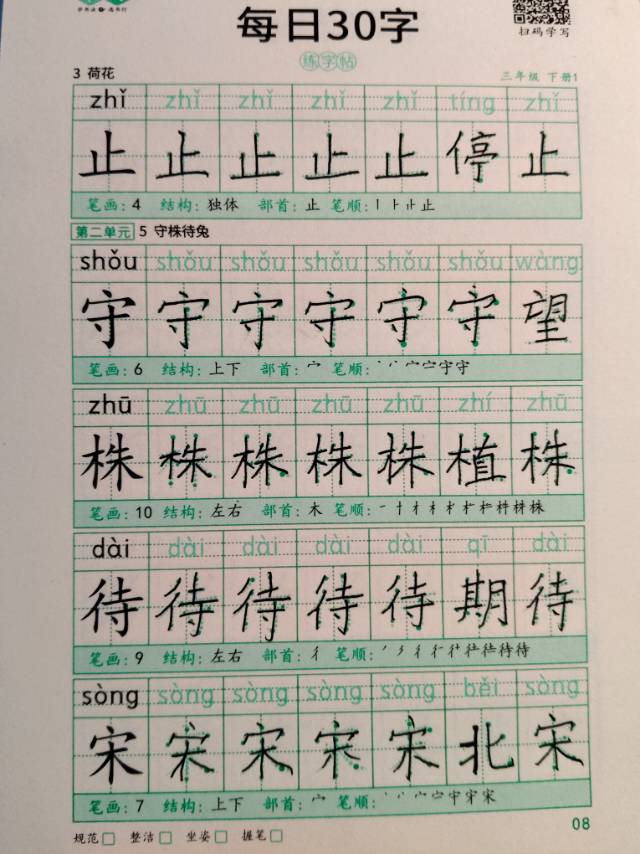 每日30字
扫码学写
练字帖
3 荷花
三年级 下册1
zhǐ zhǐ zhǐ zhǐ zhǐ tíng zhǐ
止 止 止 止 止 停 止
笔画: 4 结构: 独体 部首: 止 笔顺:
第二单元 5 守株待兔
shǒu shǒu shǒu shǒu shǒu shǒu wàng
守 守 守 守 守 守 望
笔画: 6 结构: 上下 部首: 宀 笔顺:
zhū zhū zhū zhū zhū zhí zhū
株 株 株 株 株 植 株
笔画: 10 结构: 左右 部首: 木 笔顺:
dài dài dài dài dài qī dài
待 待 待 待 待 期 待
笔画: 9 结构: 左右 部首: 彳 笔顺:
sòng sòng sòng sòng sòng běi sòng
宋 宋 宋 宋 宋 北 宋
笔画: 7 结构: 上下 部首: 宀 笔顺:
08
规范 整洁 坐姿 握笔